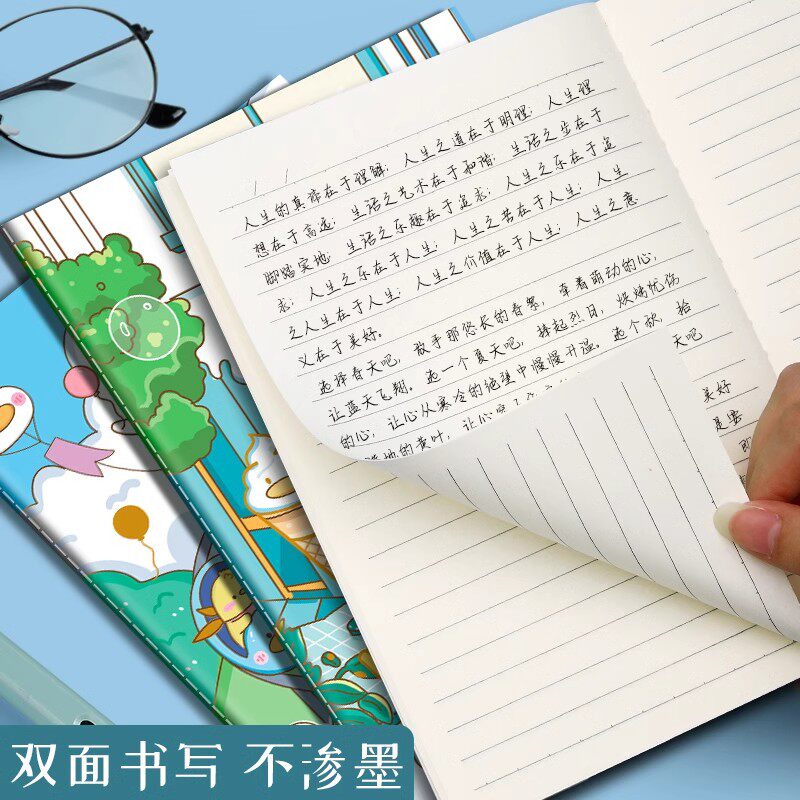 人生的真谛在于理解；人生之道在于明理；人生理
想在于高远；生活之艺术在于和谐；生活之步在于
脚踏实地；生活之乐趣在于追求；人生之乐在于追
求；人生之乐在于人生；人生之苦在于人生；人生
之人生在于人生；人生之价值在于人生；人生之意
义在于美好。
选择春天吧，那悠长的春景，牵着萌动的心，
让蓝天飞翔。选一个夏天吧，择起烈日，烘烤忧伤
的心，让心从寒冷的绝望中慢慢升温。选个秋，拾
地的黄叶，让心
天吧
美好
是要
双面书写 不渗墨